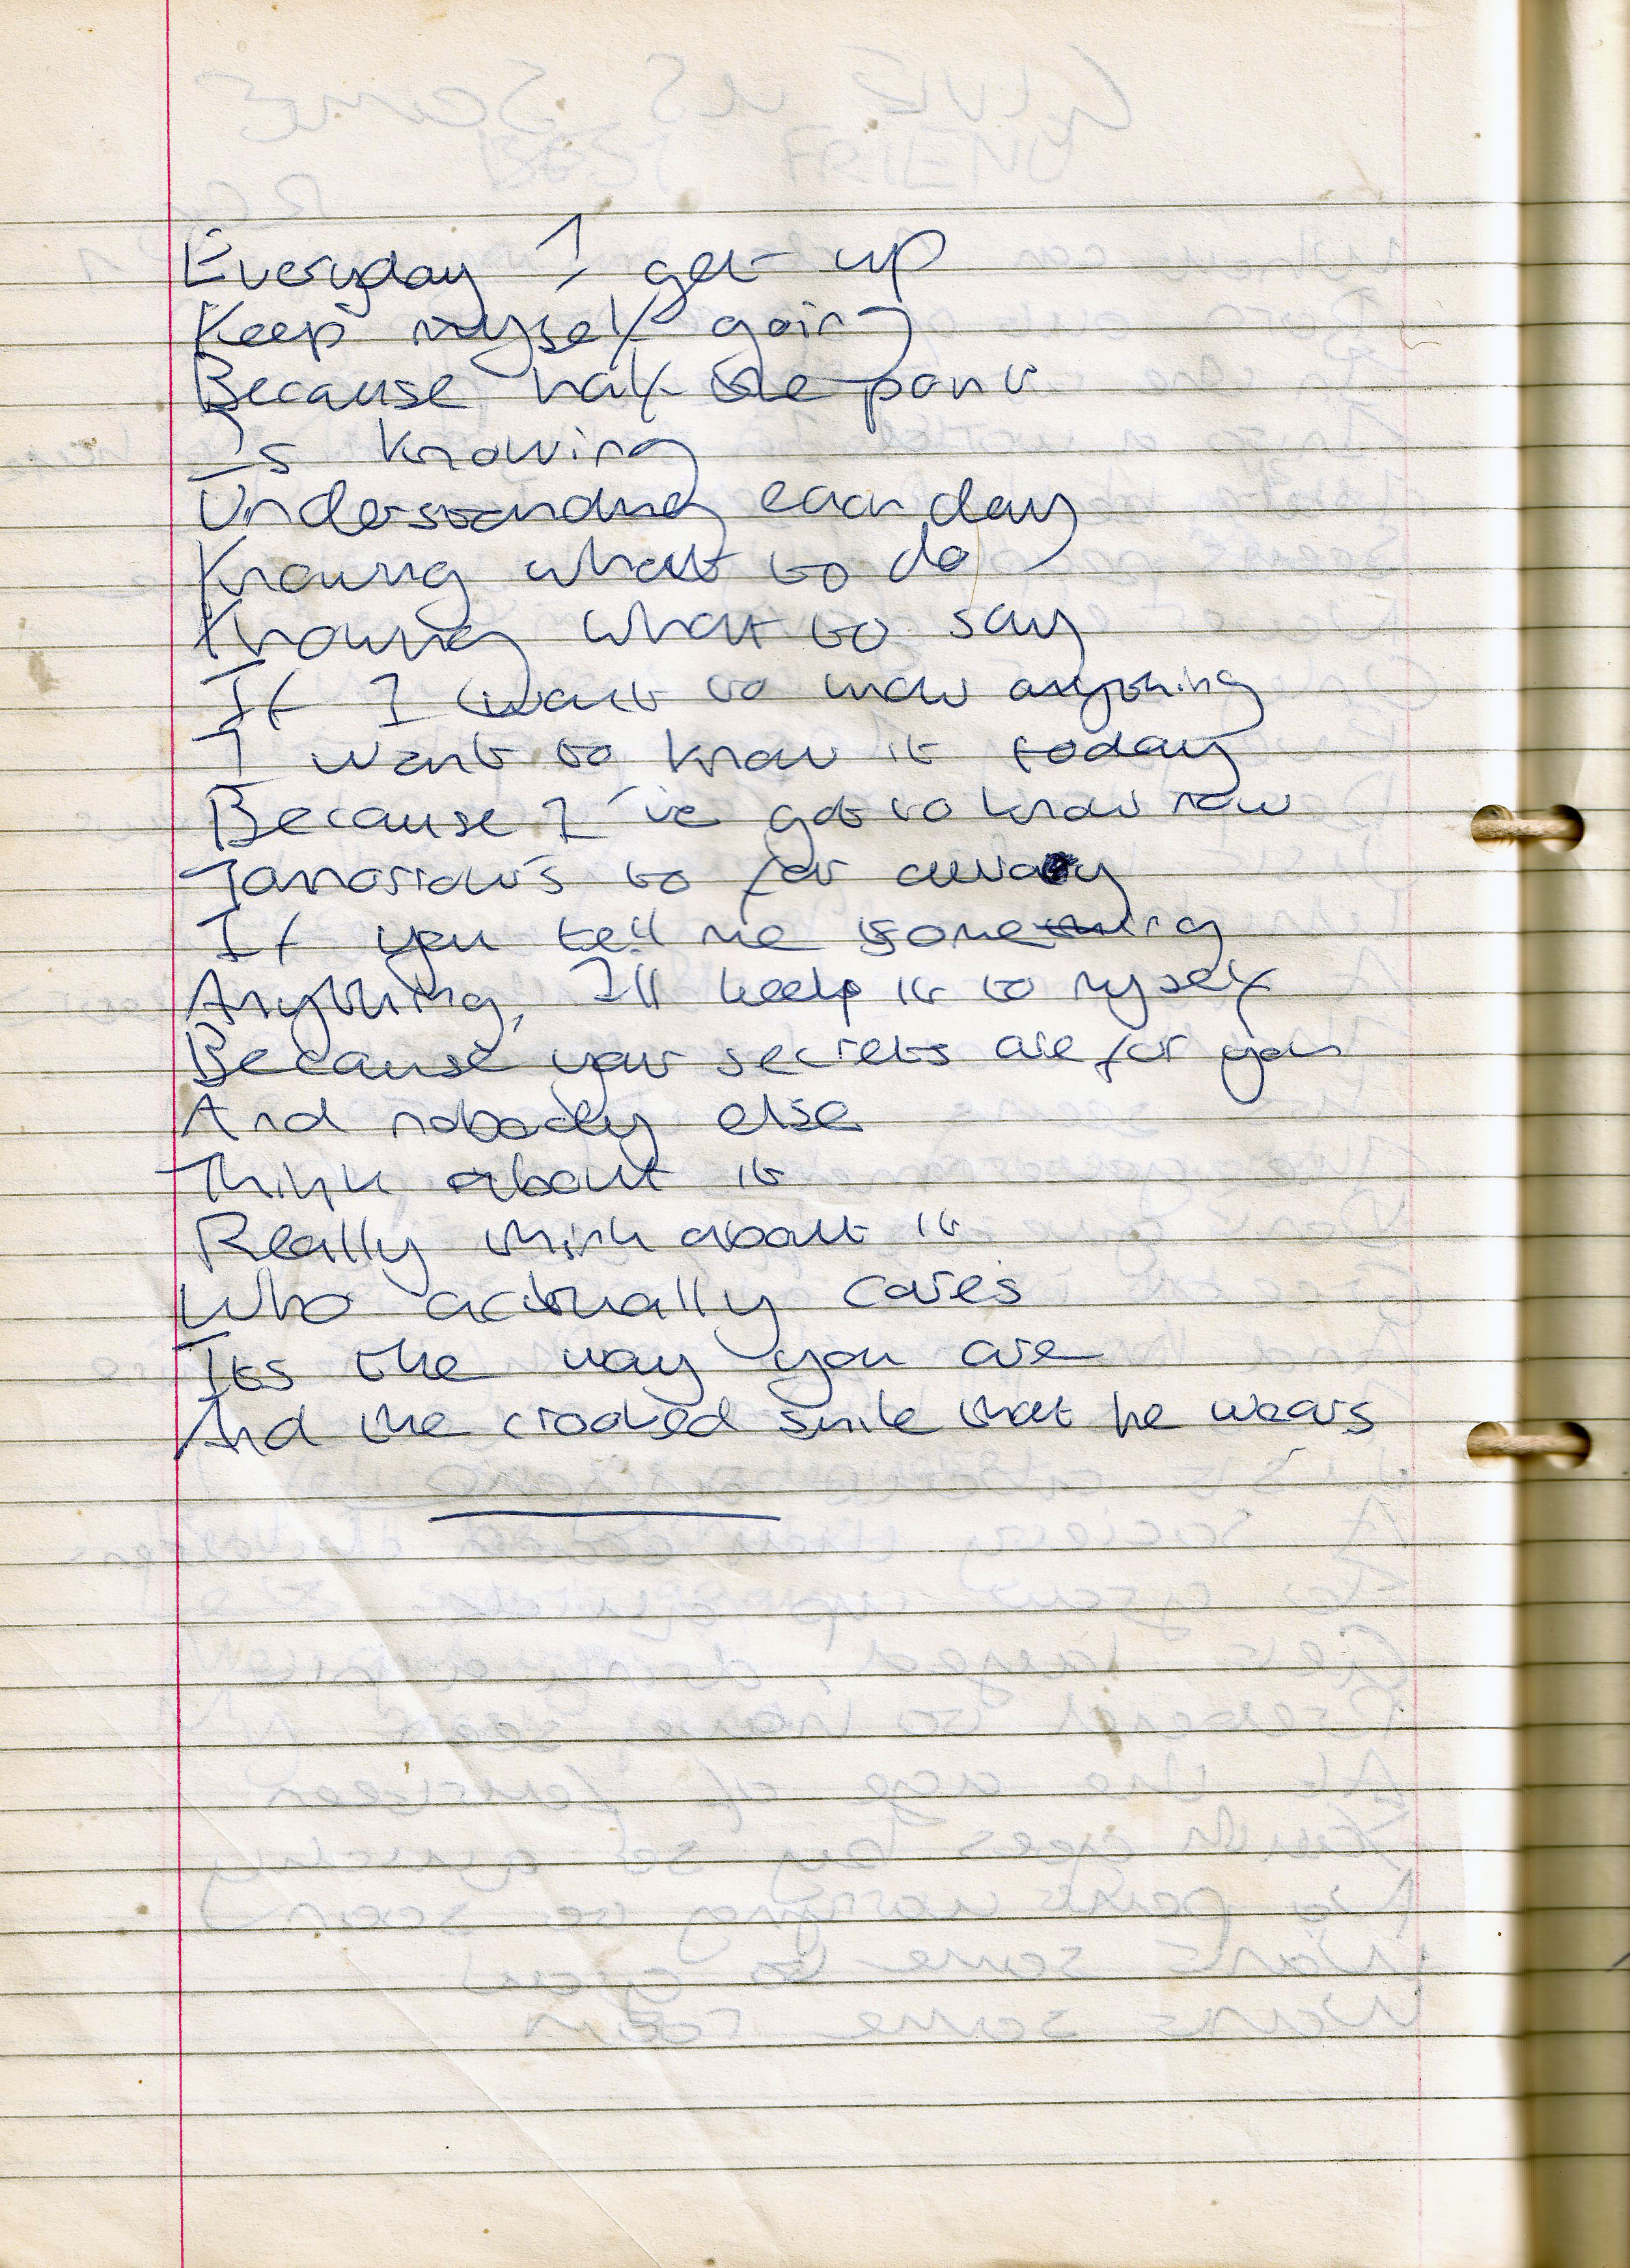 Everyday I get up
Keep myself going
Because half the point
Is knowing
Understanding each day
Knowing what to do
Knowing what to say
If I want to know anything
I want to know it today
Because I've got to know now
Tomorrow's to far away
If you tell me something
Anything, I'll keep it to myself
Because your secrets are for you
And nobody else
Think about it
Really think about it
Who actually cares
Its the way you are
And the crooked smile that he wears